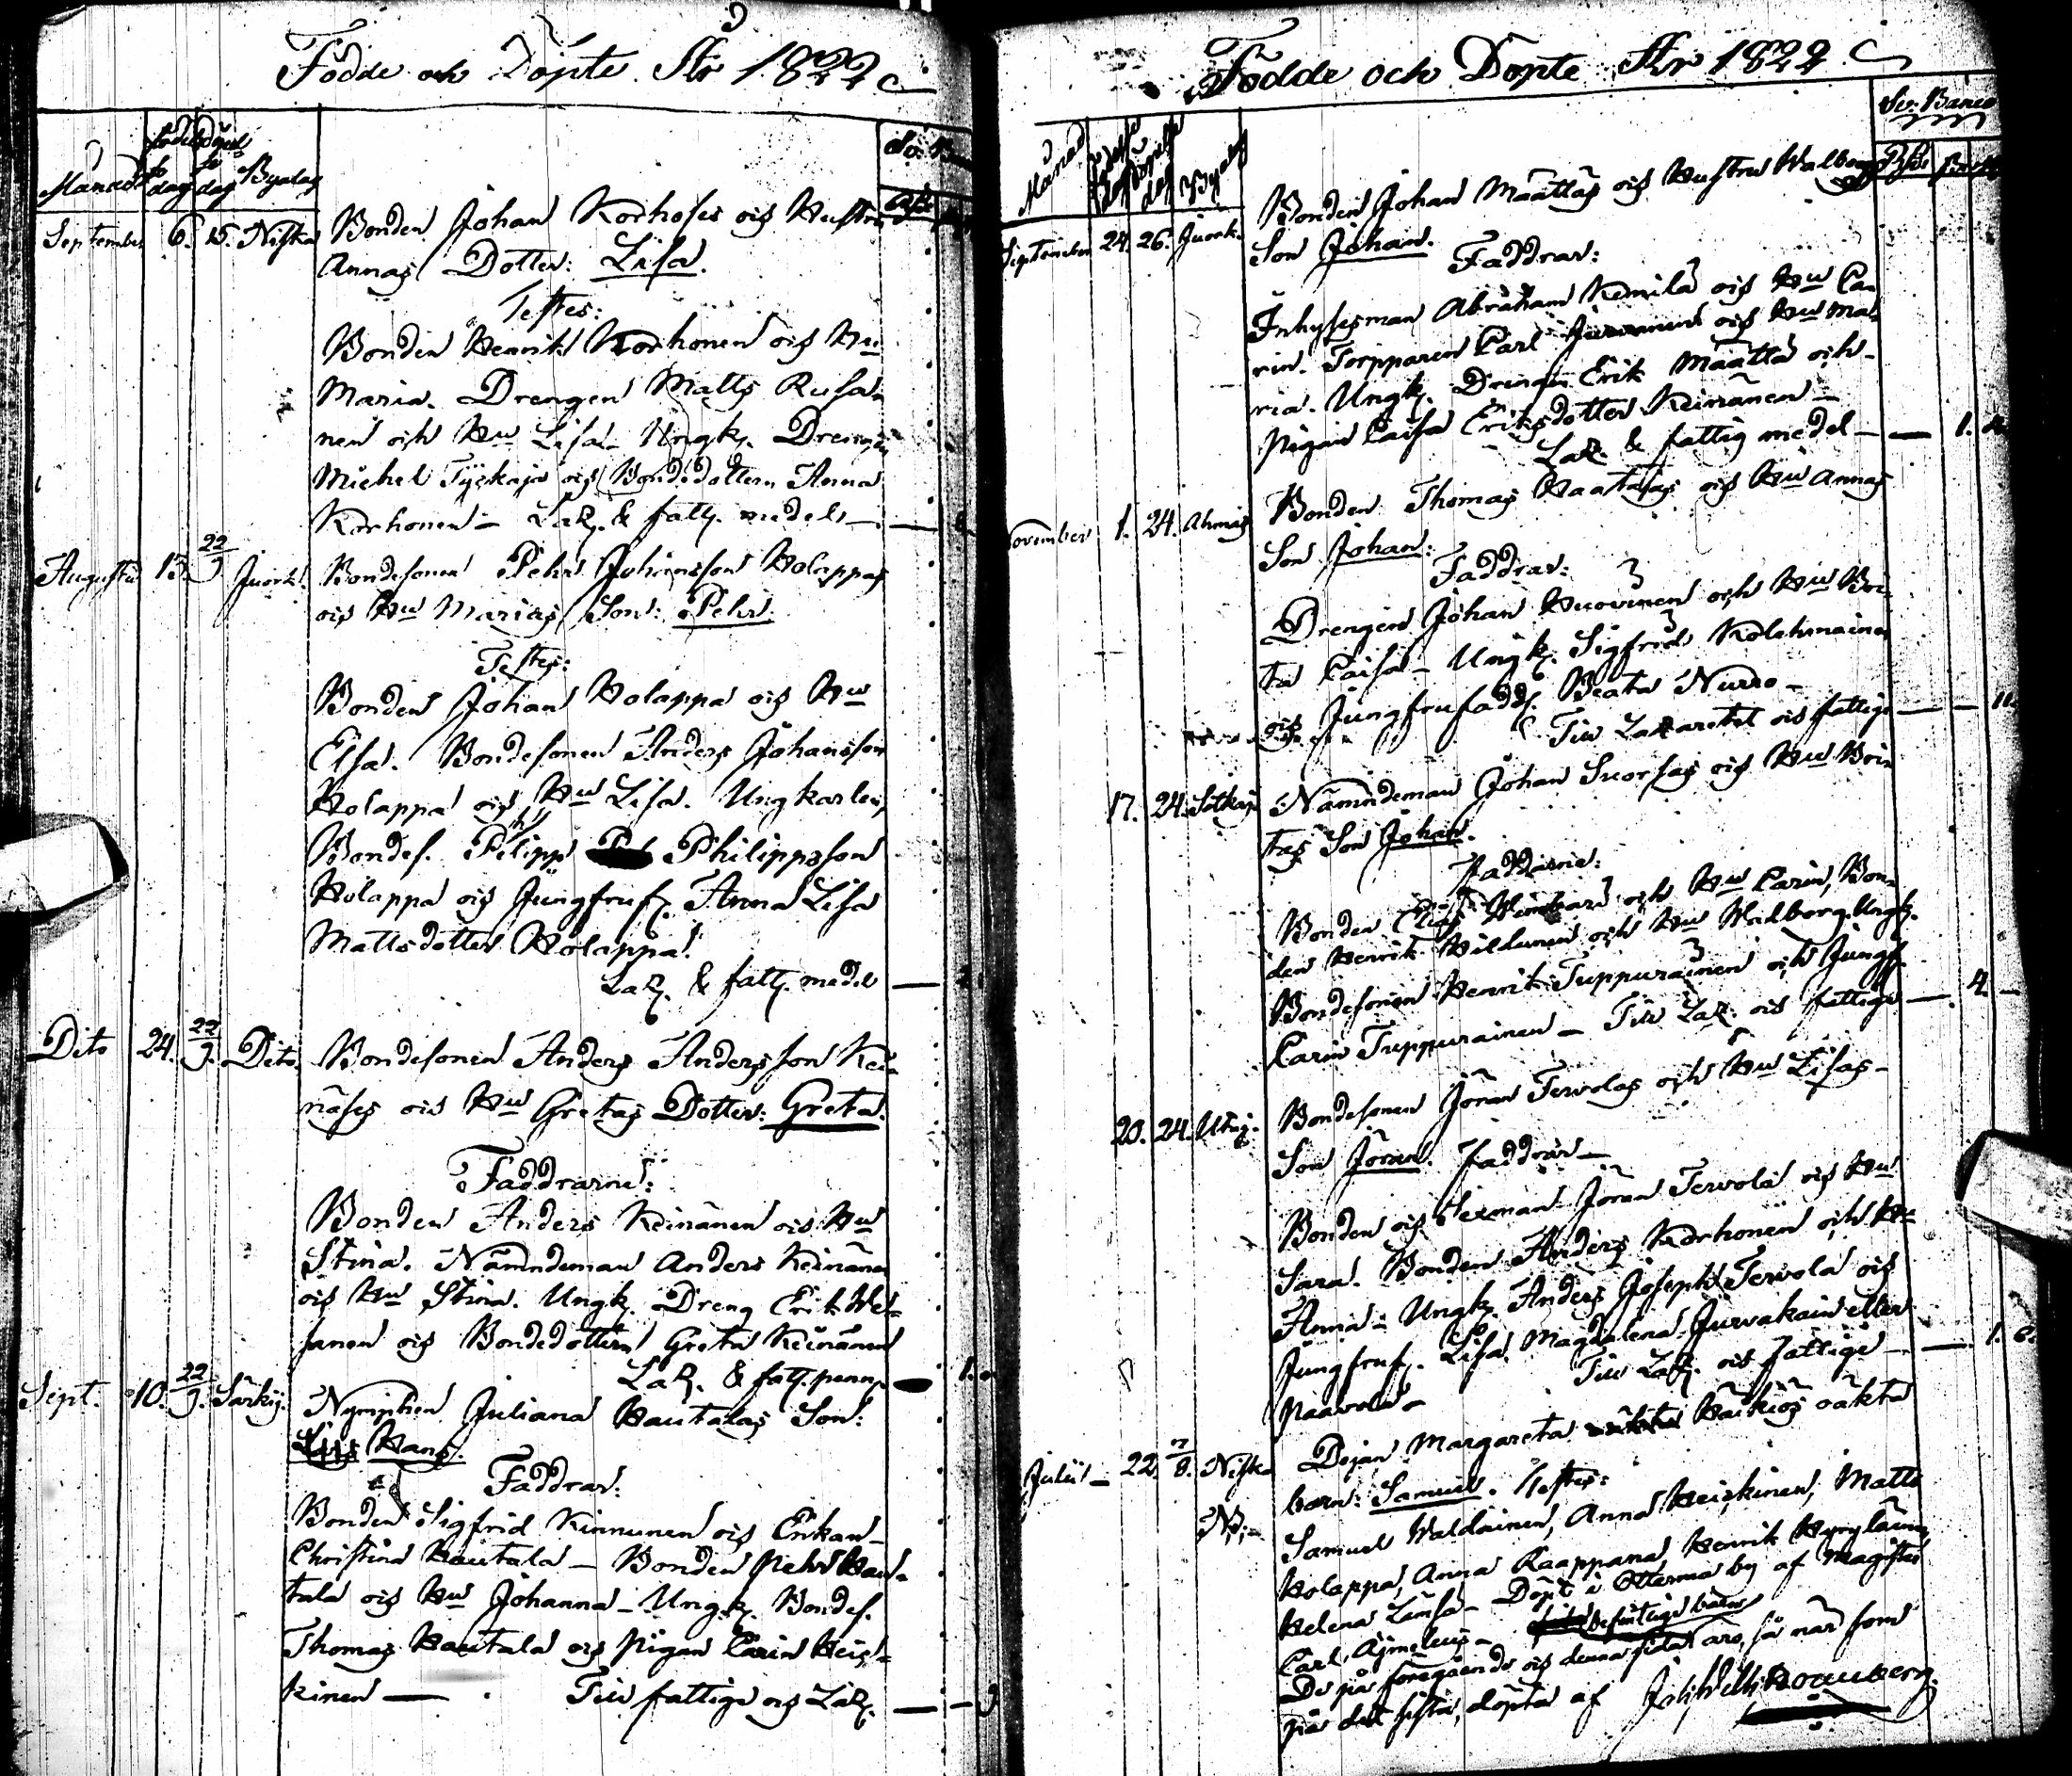 Födde och Döpte År 1822
Månad födelse dag döpelse dag Byalag
Sv. Banco
Rdr
September 6. 15. Niska Bonden Johan Korhoses och Hustru
Annas Dotter: Lisa.
Testes:
Bonden Henrik Korhonen och Hu
Maria. Drengen Matts Rusa-
nen och Hu Lisa. Ungk. Drengen
Michel Tyckojo och Bondedottern Anna
Korhonen – Laz. & fatt. medel –
Augusti 13. 22/9 Juork. Bondesonen Pehr Johansson Holappas
och Hu Marias Son: Pehr.
Testes:
Bonden Johan Holappa och Hu
Elsa. Bondesonen Anders Johansson
Holappa och Hu Lisa. Ungkarlen,
Bondes. Philipp Philippsson
Holappa och Jungfruf. Anna Lisa
Mattsdotter Holappa.
Laz. & fatt. medel –
Dito 24. 22/9. Dito. Bondesonen Anders Andersson Kei-
näses och Hu Gretas Dotter: Greta.
Faddrarne:
Bonden Anders Keinänen och Hu
Stina. Nämndeman Anders Keinänen
och Hu Stina. Ungk. Dreng Erik
sanen och Bondedottern Greta Keinänen
Laz. & fatt. penn. – 1.
Sept. 10. 22/9. Särkij. Nymphen Juliana Hautalas Son:
Hans.
Faddrar:
Bonden Sigfrid Kinnunen och Enkan
Christina Hautala – Bonden Pehr Hau-
tala och Hu Johanna – Ungk. Bondes.
Thomas Hautala och Pigan Carin Heis-
kinen – Till fattige och Laz. –
Födde och Döpte År 1822
Månad födelse dag döpelse dag Byalag
Sv. Banco
Rdr
September 24. 26. Juork. Bonden Johan Määttäs och Hustru Walborgs
Son Johan.
Faddrar:
Inhysesman Abraham Kemilä och Hu Ca-
rin. Torpparen Carl och Hu Ma-
ria. Ungk. Drengen Erik Määttä och
Pigan Caisa Eriksdotter Keinänen –
Laz. & fattig medel – 1.
November 1. 24. Ahmas Bonden Thomas Haatajas och Hu Annas
Son Johan:
Faddrar:
Drengen Johan Huovinen och Hu Bri-
ta Caisa – Ungk. Sigfrid Kolehmainen
och Jungfrufadd. Beata Nurro –
Till Lazarettet och fattige –
17. 24. Sotkajä Nämndeman Johan Suorsas och Hu Bri-
tas Son Johan.
Faddrarne:
Bonden Elias och Hu Carin, Bon-
den Henrik Hildunen och Hu Walborg. Ungk.
Bondesonen Henrik Tuppurainen och Jungf.
Carin Tuppurainen – Till Laz. och fattige – 4. –
20. 24. Utaj. Bondesonen Jöran Tervolas och Hu Lisas
Son Jöran. Faddrar –
Bonden och Sexman Jöran Tervola och Hu
Sara. Bonden Anders Korhonen och Hu
Anna – Ungk. Anders Josephs. Tervola och
Jungfruf. Lisa Magdalena Jurvakain eller
Paavola – Till Laz. och fattige – 1.
Julii – 22. /8. Niska Pojan Margareta Haikiös oäkta
barn: Samuel. Testes:
NB: Samuel Waldainen, Anna Heiskinen, Matts
Holappa, Anna Kaappana, Henrik
Helena Limsa – Döpt i Otterma by af Magister
Carl Ajmelius – befintlige barn
De på föregående och denna sidan äro, så när som
på det sista, döpta af Joh: Wilh: Bonnberg.